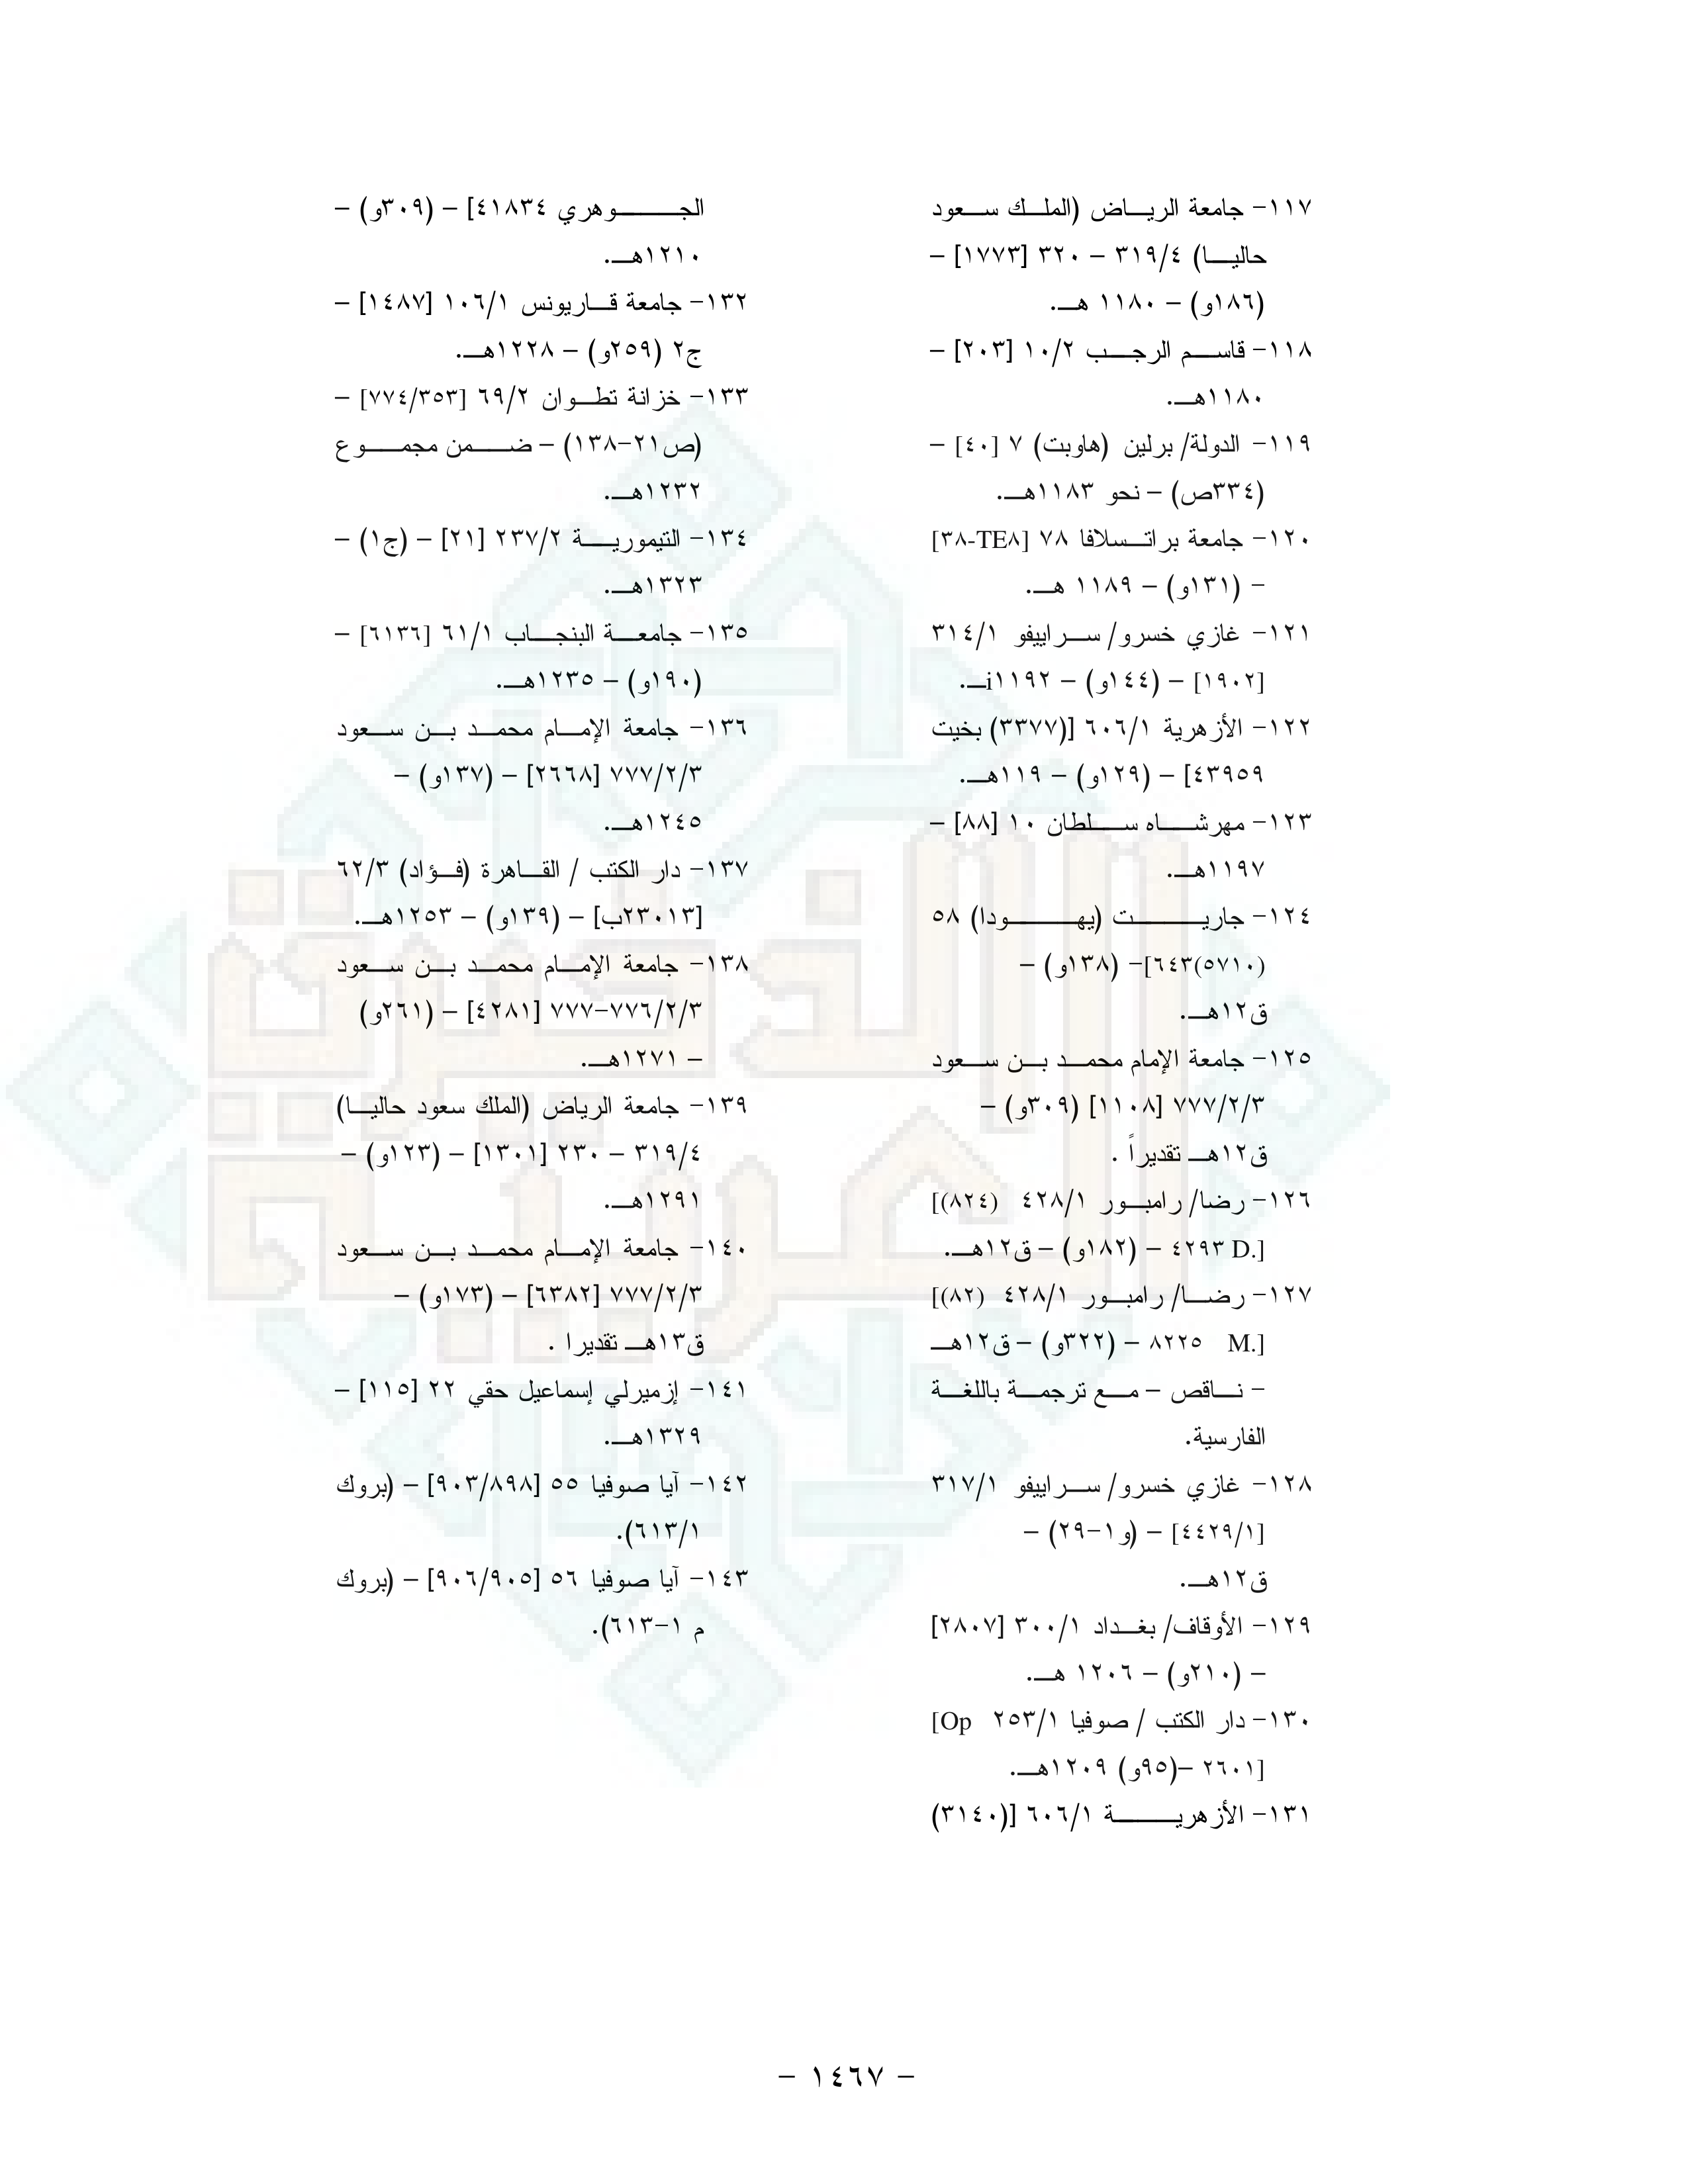 ١١٧- جامعة الرياض (الملك سعود
حاليا) ٣١٩/٤ – ٣٢٠ [١٧٧٣] –
(١٨٦و) – ١١٨٠ هـ.
١١٨- قاسم الرجب ١٠/٢ [٢٠٣] –
١١٨٠هـ.
١١٩- الدولة/ برلين (هاوبت) ٧ [٤٠] –
(٣٣٤ص) – نحو ١١٨٣هـ.
١٢٠- جامعة براتسلافا ٧٨ [٣٨-TE٨]
– (١٣١و) – ١١٨٩ هـ.
١٢١- غازي خسرو/ سراييفو ٣١٤/١
[١٩٠٢] – (١٤٤و) – ١١٩٢iـ.
١٢٢- الأزهرية ٦٠٦/١ [(٣٣٧٧) بخيت
٤٣٩٥٩] – (١٢٩و) – ١١٩هـ.
١٢٣- مهرشاه سلطان ١٠ [٨٨] –
١١٩٧هـ.
١٢٤- جاريت (يهودا) ٥٨
(٥٧١٠)٦٤٣]– (١٣٨و) –
ق١٢هـ.
١٢٥- جامعة الإمام محمد بن سعود
٧٧٧/٢/٣ [١١٠٨] (٣٠٩و) –
ق١٢هـ تقديراً .
١٢٦- رضا/ رامبور ٤٢٨/١ (٨٢٤)]
[.D ٤٢٩٣ – (١٨٢و) – ق١٢هـ.
١٢٧- رضا/ رامبور ٤٢٨/١ (٨٢)]
[.M ٨٢٢٥ – (٣٢٢و) – ق١٢هـ
– ناقص – مع ترجمة باللغة
الفارسية.
١٢٨- غازي خسرو/ سراييفو ٣١٧/١
[٤٤٢٩/١] – (و١-٢٩) –
ق١٢هـ.
١٢٩- الأوقاف/ بغداد ٣٠٠/١ [٢٨٠٧]
– (٢١٠و) – ١٢٠٦ هـ.
١٣٠- دار الكتب / صوفيا ٢٥٣/١ Op]
[٢٦٠١ –(٩٥و) ١٢٠٩هـ.
١٣١- الأزهرية ٦٠٦/١ [(٣١٤٠)
الجوهري ٤١٨٣٤] – (٣٠٩و) –
١٢١٠هـ.
١٣٢- جامعة قاريونس ١٠٦/١ [١٤٨٧] –
ج٢ (٢٥٩و) – ١٢٢٨هـ.
١٣٣- خزانة تطوان ٦٩/٢ [٧٧٤/٣٥٣] –
(ص٢١-١٣٨) – ضمن مجموع
١٢٣٢هـ.
١٣٤- التيمورية ٢٣٧/٢ [٢١] – (ج١) –
١٣٢٣هـ.
١٣٥- جامعة البنجاب ٦١/١ [٦١٣٦] –
(١٩٠و) – ١٢٣٥هـ.
١٣٦- جامعة الإمام محمد بن سعود
٧٧٧/٢/٣ [٢٦٦٨] – (١٣٧و) –
١٢٤٥هـ.
١٣٧- دار الكتب / القاهرة (فؤاد) ٦٢/٣
[٢٣٠١٣ب] – (١٣٩و) – ١٢٥٣هـ.
١٣٨- جامعة الإمام محمد بن سعود
٧٧٦/٢/٣-٧٧٧ [٤٢٨١] – (٢٦١و)
– ١٢٧١هـ.
١٣٩- جامعة الرياض (الملك سعود حاليا)
٣١٩/٤ – ٢٣٠ [١٣٠١] – (١٢٣و) –
١٢٩١هـ.
١٤٠- جامعة الإمام محمد بن سعود
٧٧٧/٢/٣ [٦٣٨٢] – (١٧٣و) –
ق١٣هـ تقديرا .
١٤١- إزميرلي إسماعيل حقي ٢٢ [١١٥] –
١٣٢٩هـ.
١٤٢- آيا صوفيا ٥٥ [٩٠٣/٨٩٨] – (بروك
٦١٣/١).
١٤٣- آيا صوفيا ٥٦ [٩٠٦/٩٠٥] – (بروك
م ١-٦١٣).
– ١٤٦٧ –
الذخائر
العربية